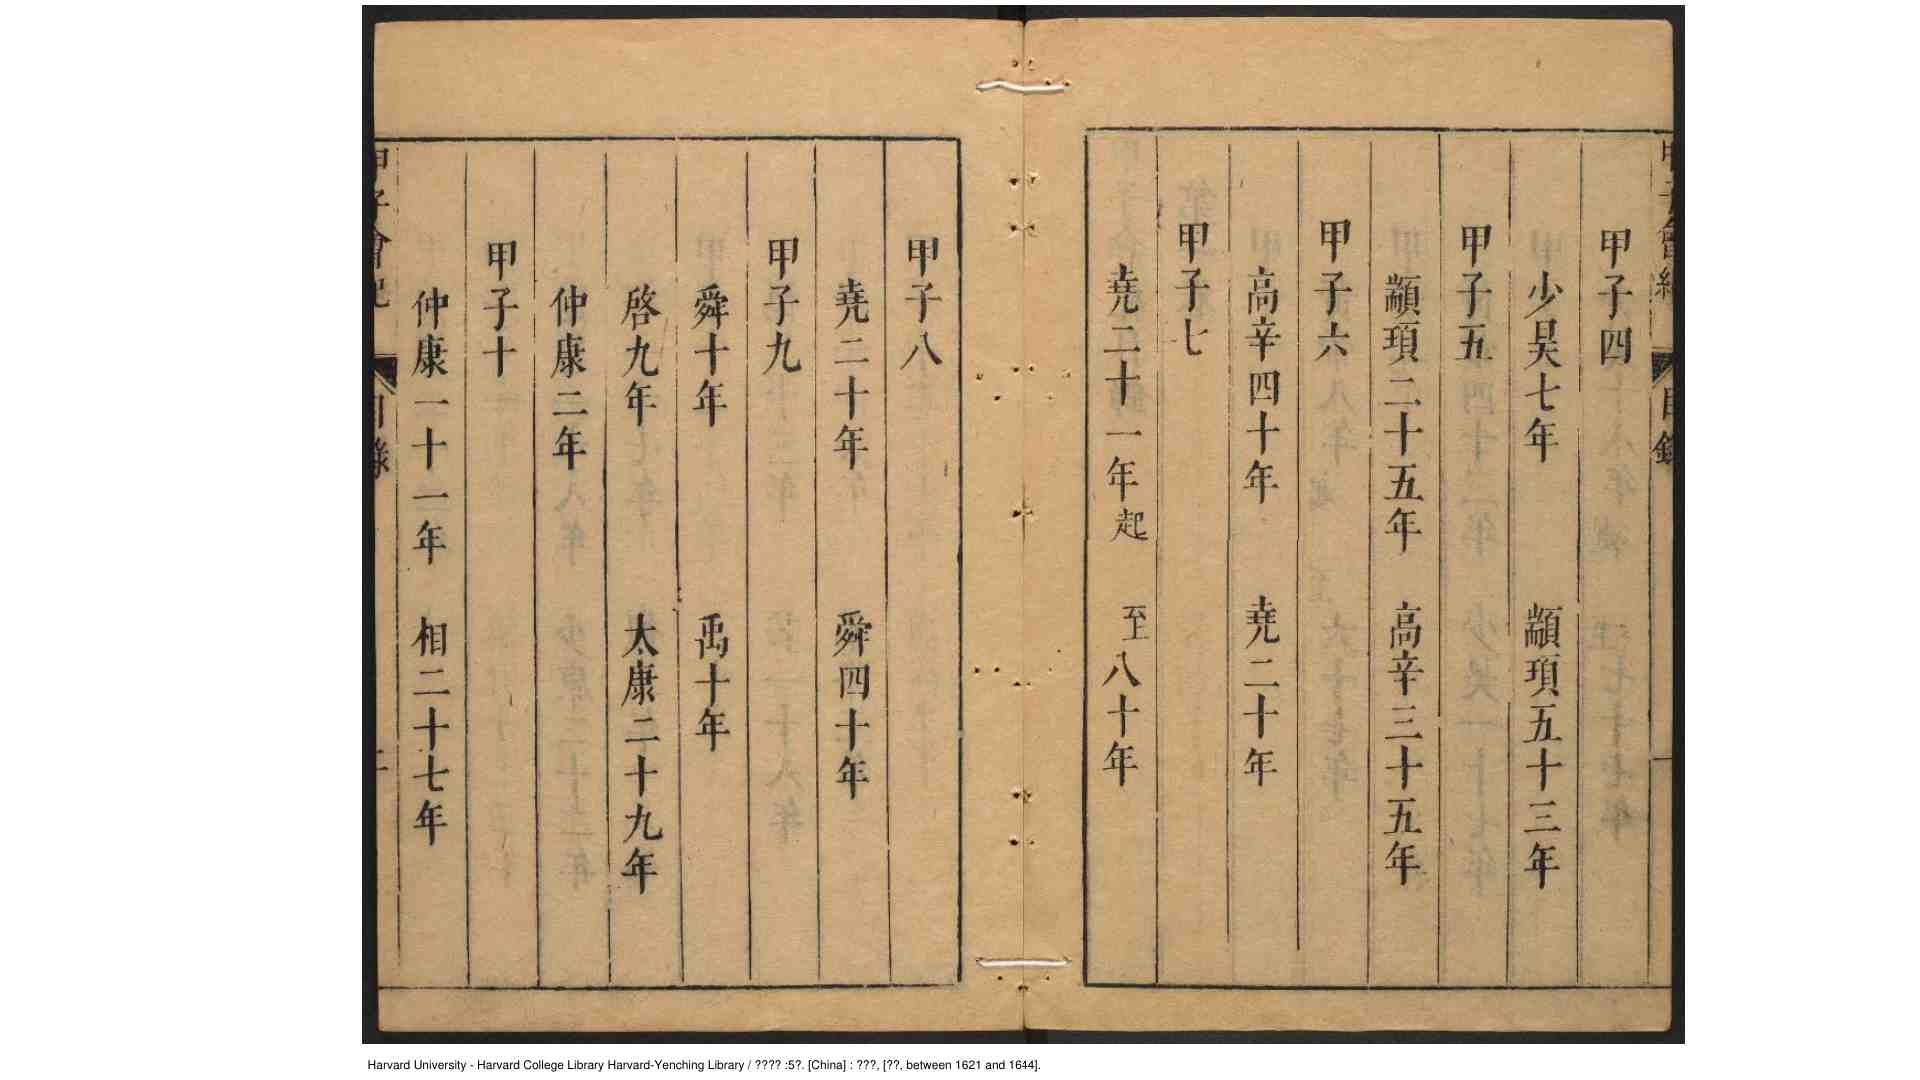 甲子會紀 目錄 一
甲子四
少昊七年 顓頊五十三年
甲子五
顓頊二十五年 高辛三十五年
甲子六
高辛四十年 堯二十年
甲子七
堯二十一年起 至八十年
甲子八
堯二十年 舜四十年
甲子九
舜十年 禹十年
啓九年 太康二十九年
仲康二年
甲子十
仲康一十一年 相二十七年
甲子會紀 目錄
Harvard University - Harvard College Library Harvard-Yenching Library / ???? :5?. [China] : ???, [??, between 1621 and 1644].